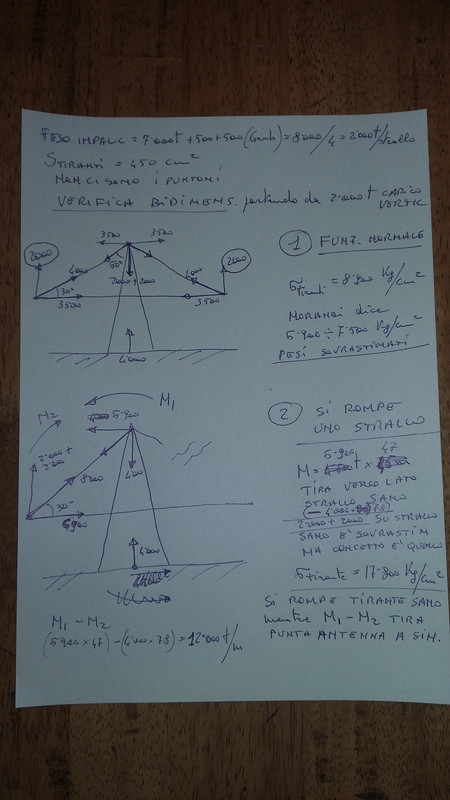 PESO IMPALC = 7.000t + 500 + 500 (Gerb) = 8000/4 = 2000t/strallo
STIRANTI = 450 cm²
NON CI SONO I PUNTONI
VERIFICA BIDIMENS. partendo da 2.000 t CARICO VERTIC
3500 3500
2000
4000
60°
30°
3500
2000+2000
4000
3500
2000
4000
① FUNZ. NORMALE
σtiranti = 8.900 Kg/cm²
MORANDI dice
5.900 ÷ 7.500 Kg/cm²
PESI SOVRASTIMATI
M₁
M₂
5.900
2.000 + 2.000
8200
4000
30°
6.900
4000
② SI ROMPE
UNO STRALLO
M = 5.900 t x 47
TIRA VERSO LATO
STRALLO SANO
2.000 + 2000 SU STRALLO
SANO È SOVRASTIM
MA CONCETTO È QUELLO
σtirante = 17.800 Kg/cm²
SI ROMPE TIRANTE SANO
mentre M₁ - M₂ TIRA
PUNTA ANTENNA A SIN.
M₁ - M₂
(5.900 x 47) - (4.000 x 78) = 12.000 t/m